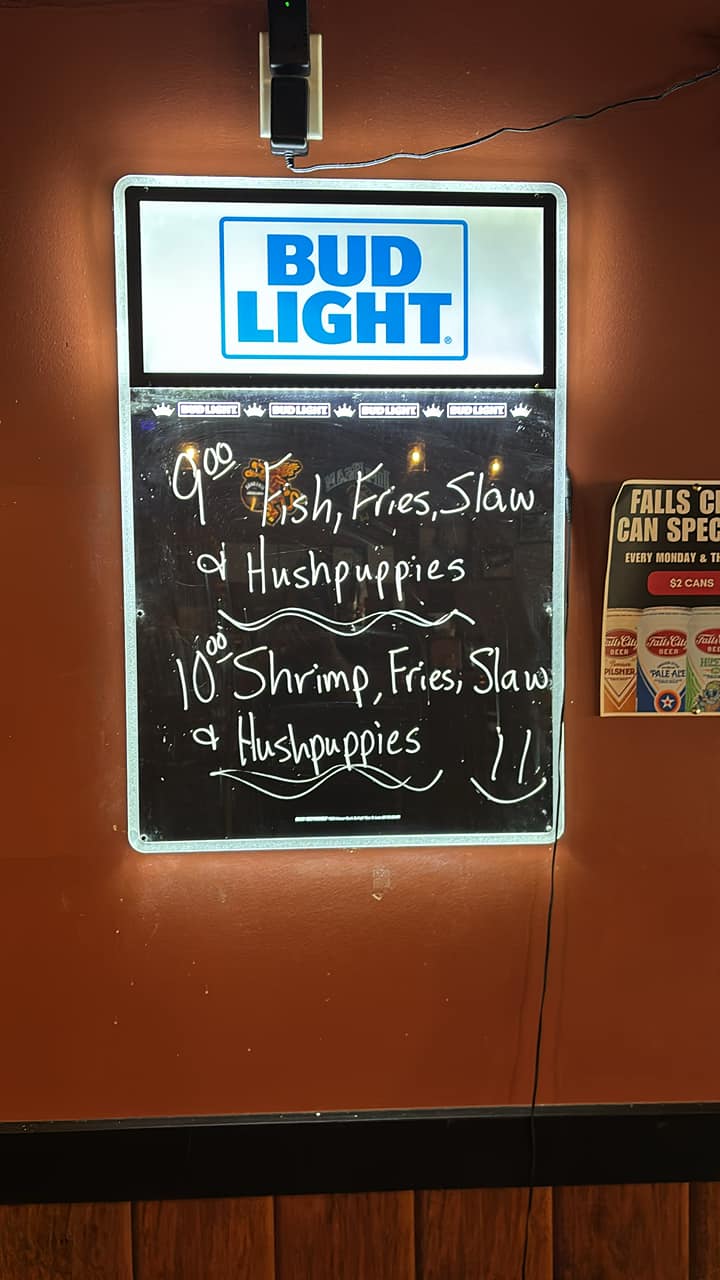 BUD
LIGHT
BUD LIGHT BUD LIGHT BUD LIGHT BUD LIGHT
9⁰⁰ Fish, Fries, Slaw
& Hushpuppies
10⁰⁰ Shrimp, Fries, Slaw
& Hushpuppies
FALLS C
CAN SPEC
EVERY MONDAY & TH
$2 CANS
Falls City Falls City Falls
BEER BEER BEER
PILSNER PALE ALE